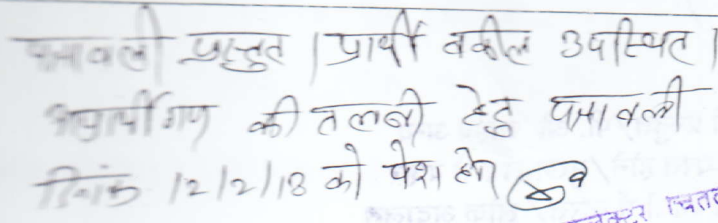 पत्रावली प्रस्तुत। प्रार्थी वकील उपस्थित।
अप्रार्थीगण की तलबी हेतु पत्रावली
दिनांक 12/2/13 को पेश हो